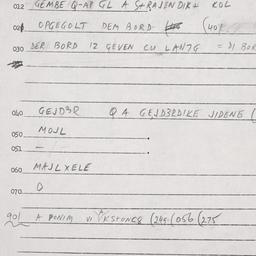 012 GEMBE Q-AP GL A STRAJENDIK+ KOL
02 OPGEGOLT DEM BORD (40
030 DER BORD IZ GEVEN CU LANJG = DI BOR
040 GEJDER Q A GEJDERDIKE JIDENE (
050 MOJL
051 —
060 MAJLXELE
070 D
901 A PONIM VI (249 (056 (275